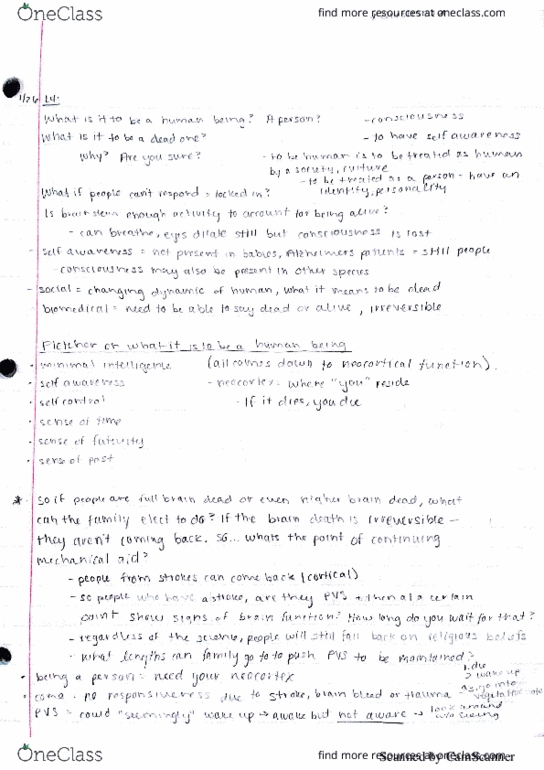 OneClass
find more resources at oneclass.com
1/26 L4:
What is it to be a human being? A person? - consciousness
What is it to be a dead one? - to have self awareness
Why? Are you sure? - to be human is to be treated as human
by a society, culture
- to be treated as a person - have an
identity, personality
What if people can't respond = locked in?
Is brain stem enough activity to account for being alive?
- can breathe, eyes dilate still but consciousness is lost
- self awareness = not present in babies, Alzheimers patients = still people
- consciousness may also be present in other species
- social = changing dynamic of human, what it means to be dead
biomedical = need to be able to say dead or alive, irreversible
Fletcher on what it is to be a human being
• minimal intelligence (all comes down to neocortical function).
• self awareness - neocortex = where "you" reside
• self control - If it dies, you die
• sense of time
• sense of futurity
• sense of past
* So if people are full brain dead or even higher brain dead, what
can the family elect to do? If the brain death is irreversible -
they aren't coming back. So... whats the point of continuing
mechanical aid?
- people from strokes can come back (cortical)
- so people who have a stroke, are they PVS + then at a certain
point show signs of brain function? How long do you wait for that?
- regardless of the science, people will still fall back on religious beliefs
- what lengths can family go to to push PVS to be maintained?
• being a person = need your neocortex
1. die
2 wake up
• coma = no responsiveness due to stroke, brain bleed or trauma → go into
vegetative state
PVS = could "seemingly" wake up → awake but not aware → look around
w/o seeing
OneClass
find more resources at oneclass.com
Scanned by CamScanner